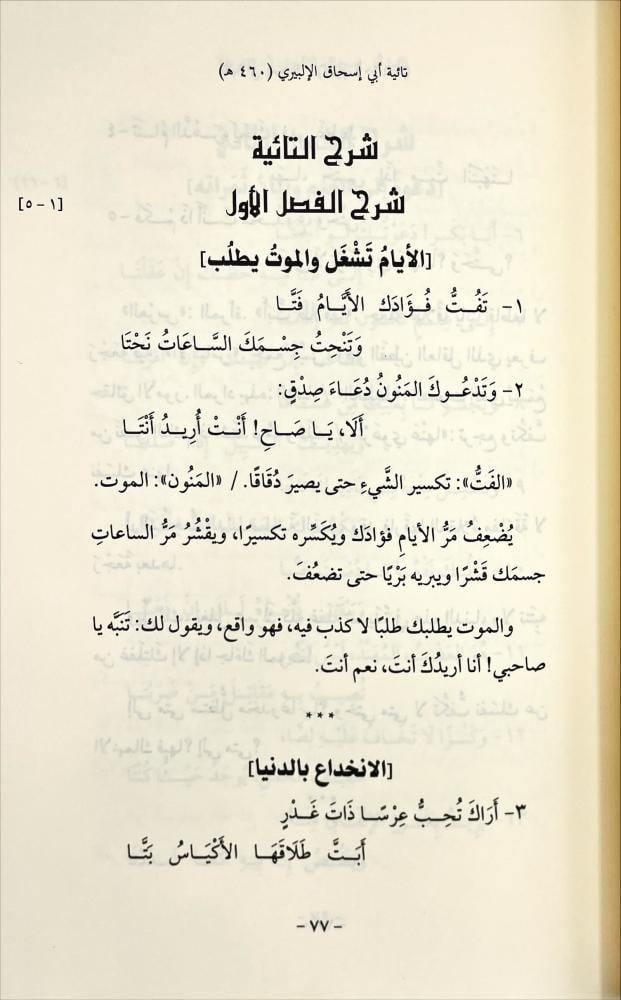 تائية أبي إسحاق الإلبيري (٤٦٠ هـ)
شرح التائية
شرح الفصل الأول
[١ - ٥]
[الأيامُ تَشْغَل والموتُ يطلُب]
١- تَفُتُّ فُؤَادَكَ الأَيَّامُ فَتَّا
وَتَنْحِتُ جِسْمَكَ السَّاعَاتُ نَحْتَا
٢- وَتَدْعُوكَ المَنُونُ دُعَاءَ صِدْقٍ:
أَلَا، يَا صَاحِ! أَنْتَ أُرِيدُ أَنْتَا
«الفَتُّ»: تكسير الشَّيءِ حتى يصيرَ دُقَاقًا. / «المَنُون»: الموت.
يُضْعِفُ مَرُّ الأيامِ فؤادَك ويُكَسِّره تكسيرًا، ويقْشُر مَرُّ الساعاتِ
جسمَك قَشْرًا ويبريه بَرْيًا حتى تضعُفَ.
والموت يطلبك طلبًا لا كذب فيه، فهو واقع، ويقول لك: تَنَبَّه يا
صاحبي! أنا أريدُكَ أنتَ، نعم أنتَ.
***
[الانخداع بالدنيا]
٣- أَرَاكَ تُحِبُّ عِرْسًا ذَاتَ غَدْرٍ
أَبَتَّ طَلَاقَهَا الأَكْيَاسُ بَتَّا
- ٧٧ -